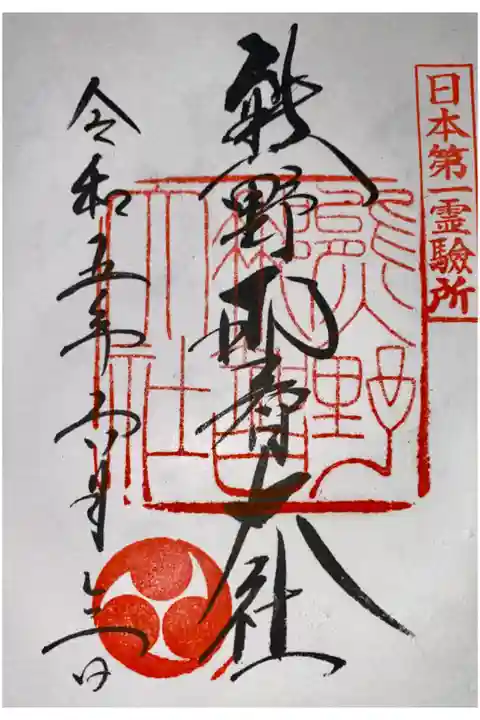 日本第一霊験所
熊野那智大社
熊野
那智
大社
令和五年 月 日